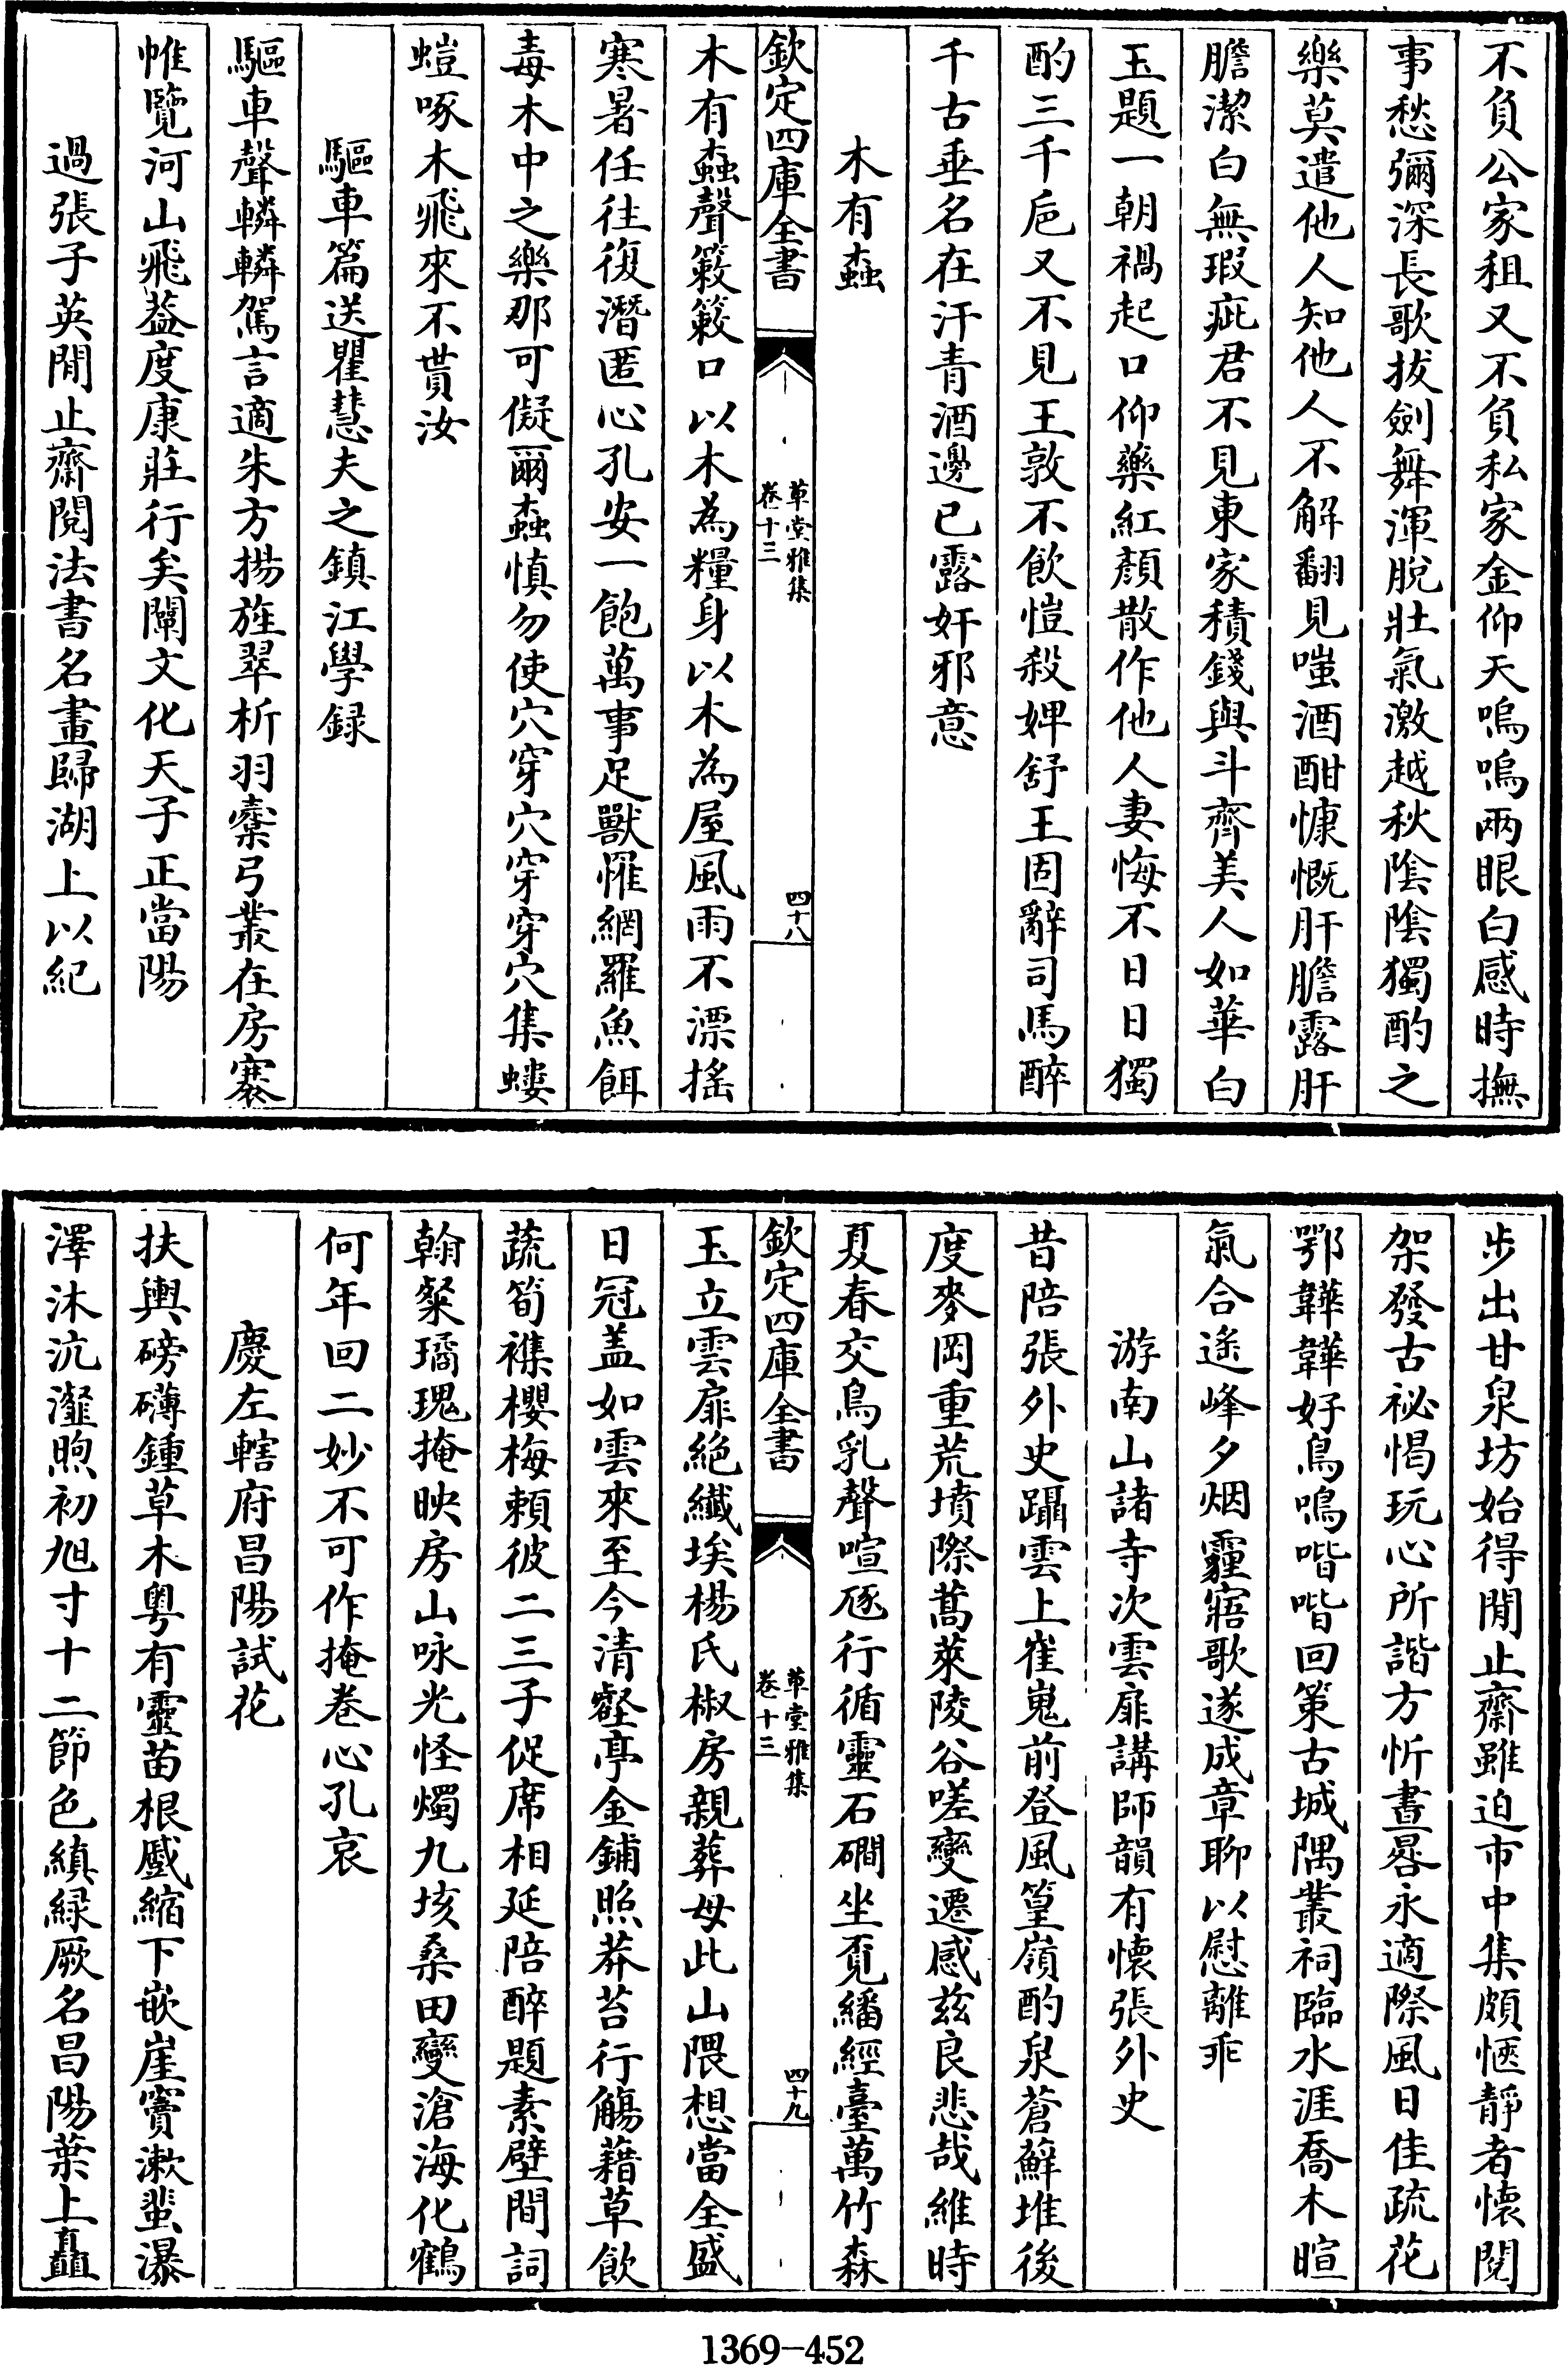 不負公家租又不負私家金仰天嗚嗚兩眼白感時撫
事愁彌深長歌拔劍舞渾脫壯氣激越秋陰陰獨酌之
樂莫遣他人知他人不解翻見嗤酒酣慷慨肝膽露肝
膽潔白無瑕疵君不見東家積錢與斗齊美人如華白
玉題一朝禍起口仰藥紅顏散作他人妻悔不日日獨
酌三千巵又不見王敦不飲愷殺婢舒王固辭司馬醉
千古垂名在汗青酒邊已露奸邪意
木有螙
欽定四庫全書
草堂雅集
卷十三
四十八
木有螙聲簌簌口以木為糧身以木為屋風雨不漂搖
寒暑任往復潛匿心孔安一飽萬事足獸罹網羅魚餌
毒木中之樂那可儗爾螙慎勿使穴穿穴穿穿穴集螻
螘啄木飛來不貰汝
驅車篇送瞿慧夫之鎮江學録
驅車聲轔轔駕言適朱方揚旌翠析羽櫜弓叢在房褰
帷覽河山飛葢度康莊行矣闡文化天子正當陽
過張子英閒止齋閱法書名畫歸湖上以紀
步出甘泉坊始得閒止齋雖迫市中集頗愜靜者懷閱
架發古祕愒玩心所諧方忻晝晷永適際風日佳疏花
鄂韡韡好鳥鳴喈喈回策古城隅叢祠臨水涯喬木暄
氣合遙峰夕烟霾寤歌遂成章聊以慰離乖
游南山諸寺次雲扉講師韻有懷張外史
昔陪張外史躡雲上崔嵬前登風篁嶺酌泉蒼蘚堆後
度麥岡重荒墳際蒿萊陵谷嗟變遷感兹良悲哉維時
夏春交鳥乳聲喧豗行循靈石磵坐覓繙經臺萬竹森
欽定四庫全書
草堂雅集
卷十三
四十九
玉立雲扉絕纖埃楊氏椒房親葬母此山隈想當全盛
日冠盖如雲來至今清壑亭金鋪照莽苔行觴藉草飲
蔬筍襍櫻梅頼彼二三子促席相延陪醉題素壁間詞
翰粲璚瑰掩映房山咏光怪燭九垓桑田變滄海化鶴
何年回二妙不可作掩巻心孔哀
慶左轄府昌陽試花
扶輿磅礴鍾草木粤有靈苗根蹙縮下嵌崖竇漱蜚瀑
澤沐沆瀣煦初旭寸十二節色縝緑厥名昌陽葉上矗
1369-452